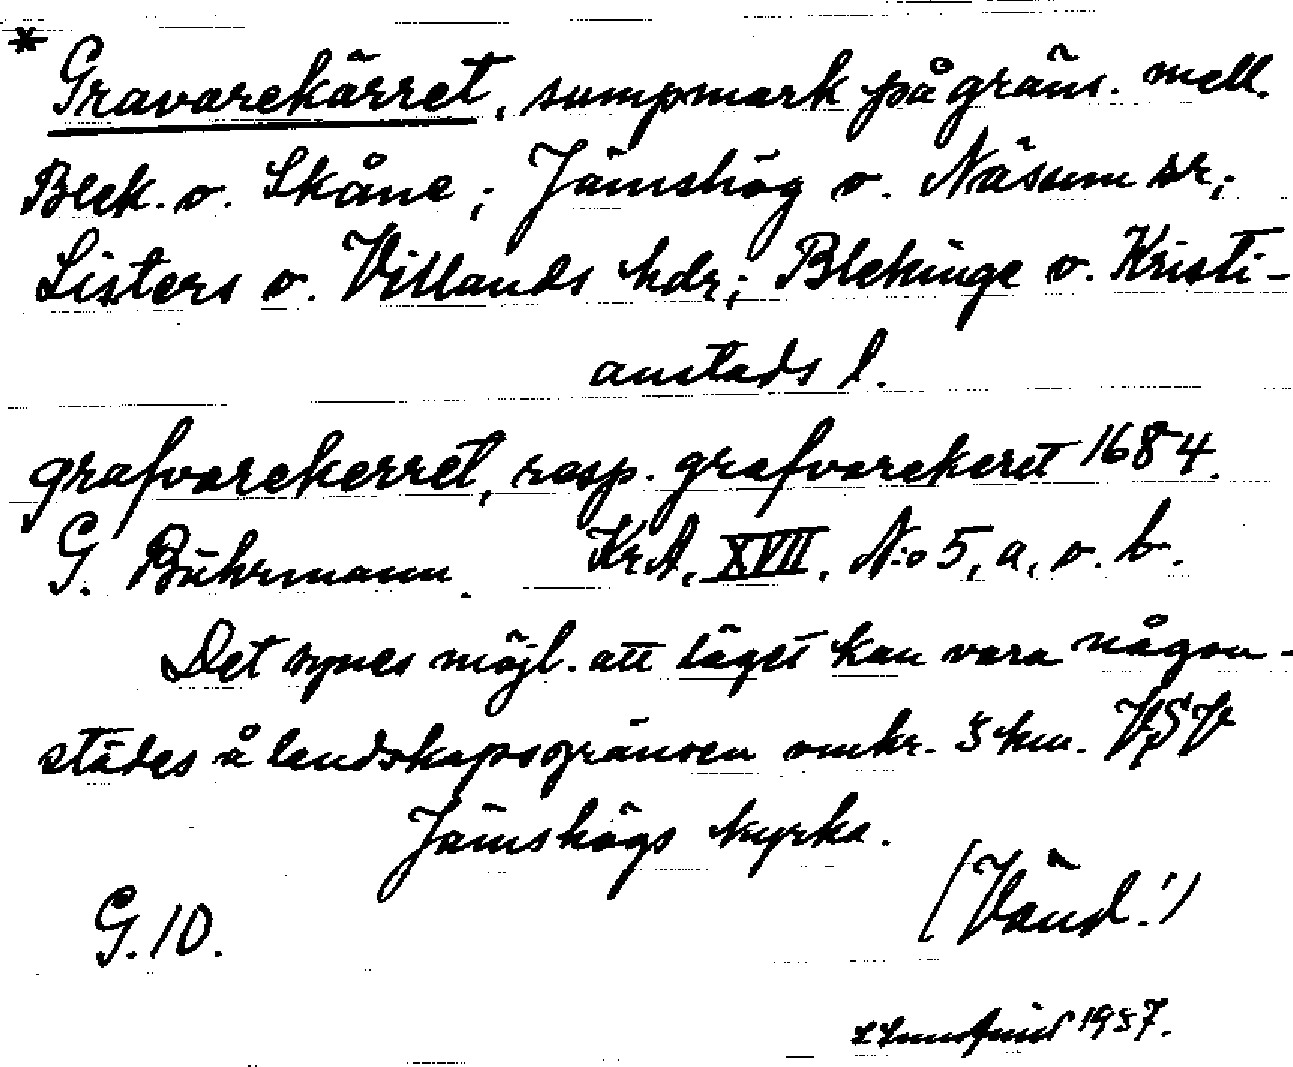 * Gravarekärret, sumpmark på gräns. mell.
Blek. o. Skåne; Jämshög o. Näsum sr;
Listers o. Villands hdr; Blekinge o. Kristi-
anstads l.
grafvarekerret, resp. grafvarekeret 1684.
G. Buhrmann. KrA, XVII, N:o 5, a, o. b.
Det synes möjl. att läget kan vara någon-
städes å landskapsgränsen omkr. 3 km. VSV
Jämshögs kyrka.
G. 10. (Vänd!)
1957.